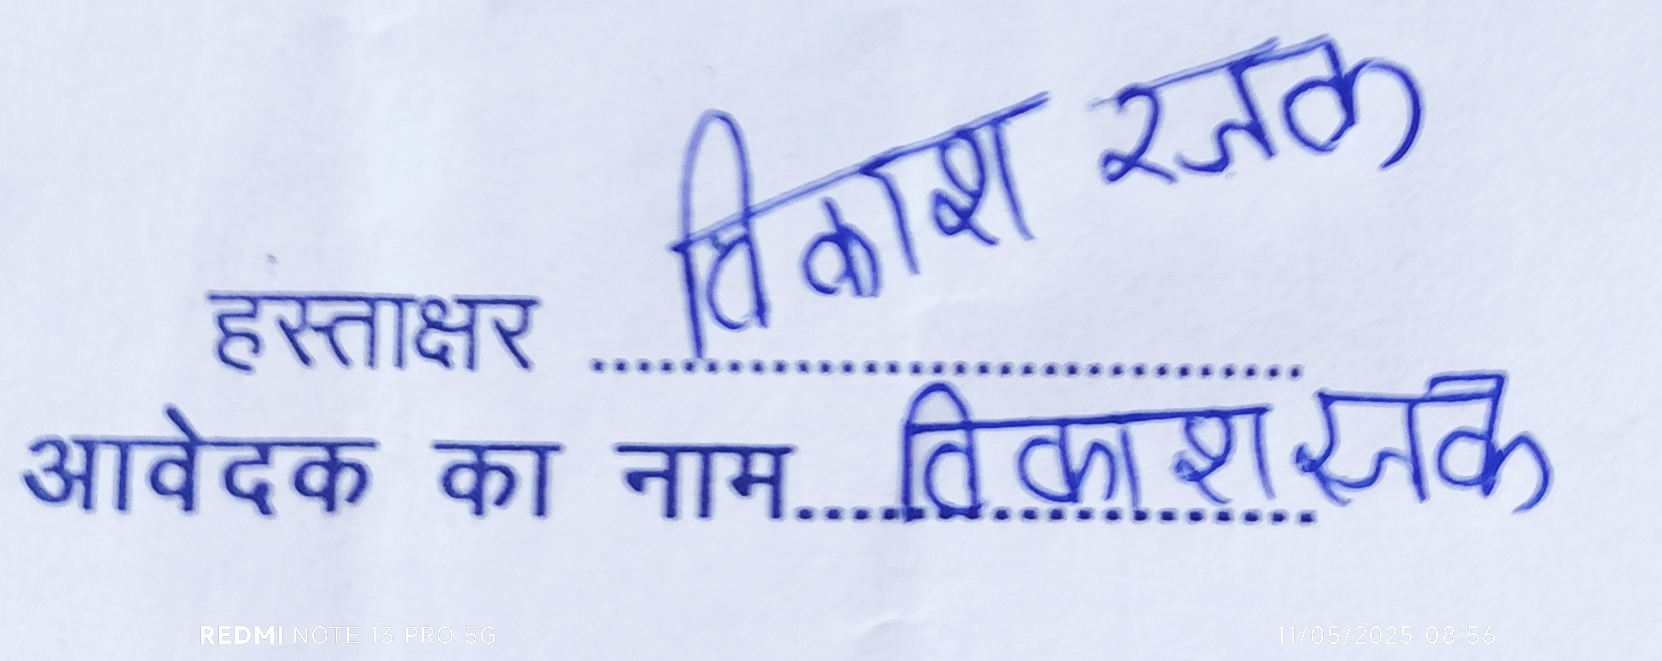 हस्ताक्षर विकाश रजक
आवेदक का नाम विकाश रजक
REDMI NOTE 13 PRO 5G 11/05/2025 08:56